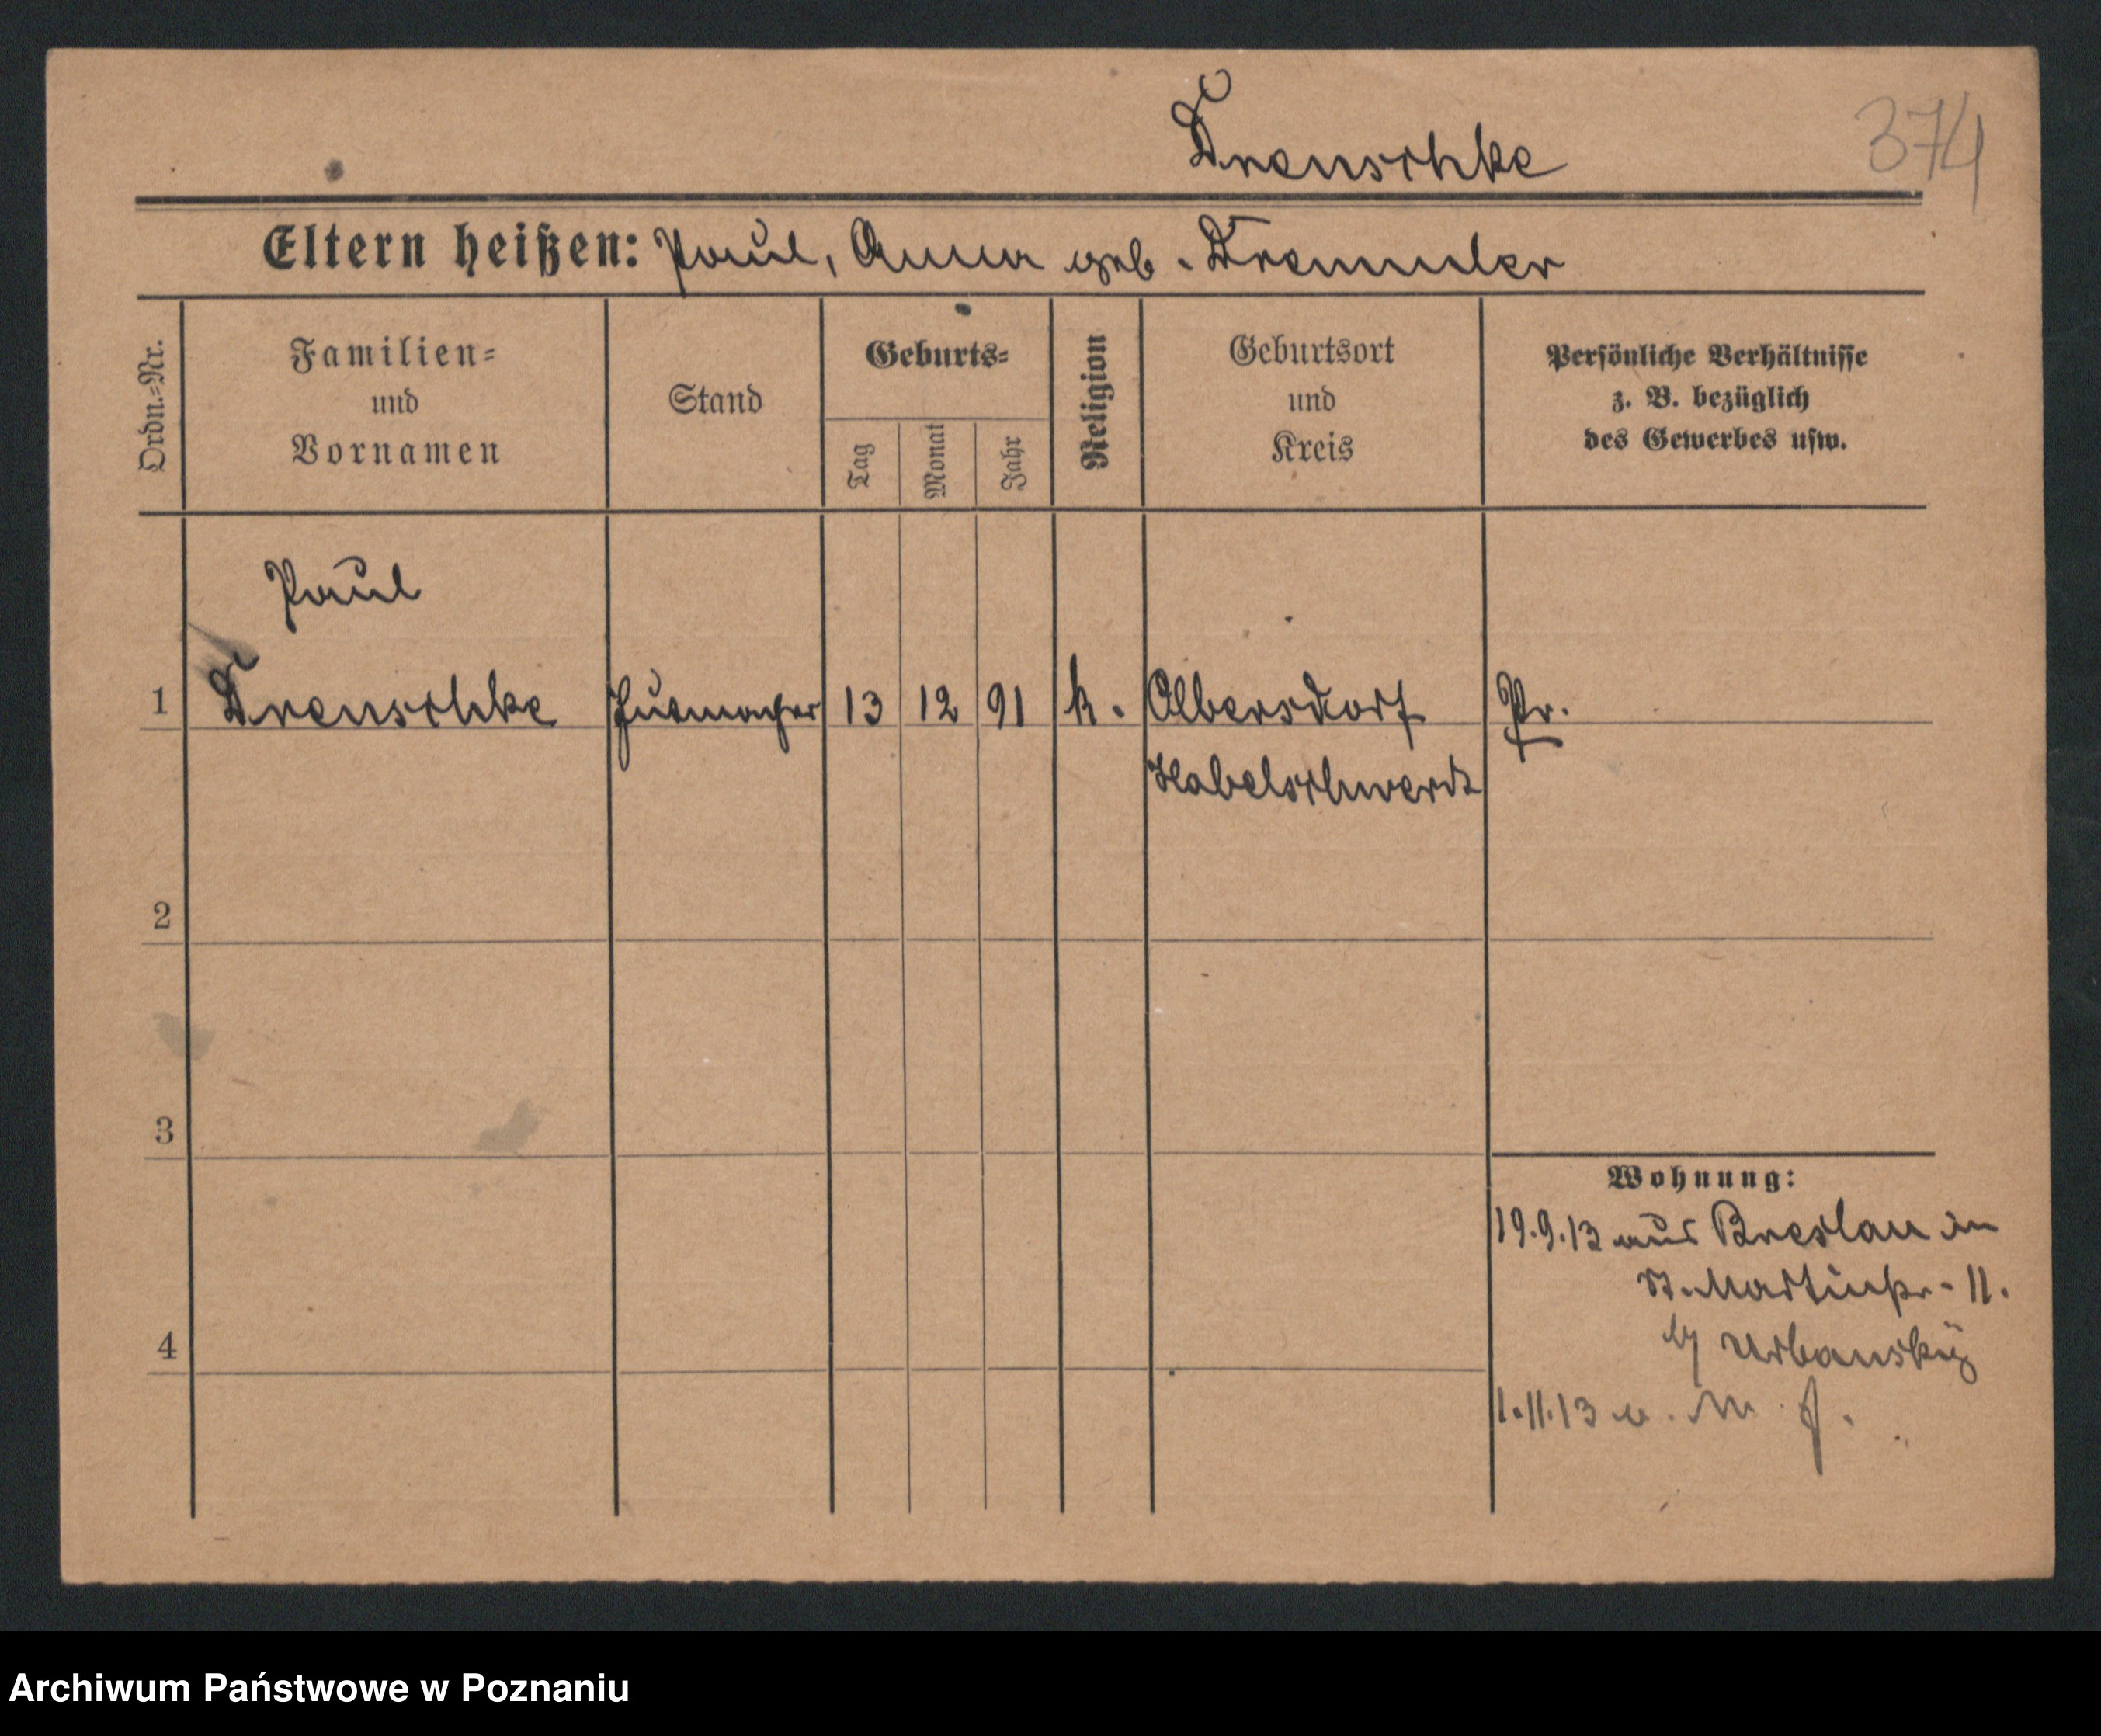 Drenschke
374
Eltern heißen: Paul, Anna geb. Tremmler
Ordn.=Nr.
Familien=
und
Vornamen
Stand
Geburts=
Tag
Monat
Jahr
Religion
Geburtsort
und
Kreis
Persönliche Verhältnisse
z. B. bezüglich
des Gewerbes usw.
Paul
1 Drenschke Hutmacher 13 12 91 k. Olbersdorf Pr.
Habelschwerdt
2
3
Wohnung:
19.9.13 aus Breslau in
St. Martinstr. 11.
b/ Urbansky
4
1.11.13
Archiwum Państwowe w Poznaniu